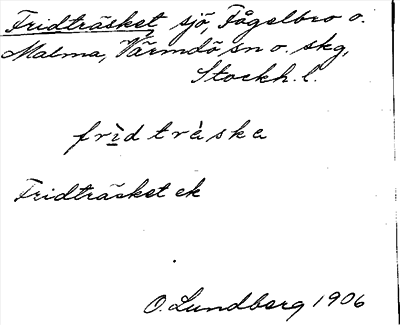 Fridträsket, sjö, Fågelbro o.
Malma, Värmdö sn o. skg,
Stockh. l.
frìd tràske
Fridträsket ek
O. Lundberg 1906